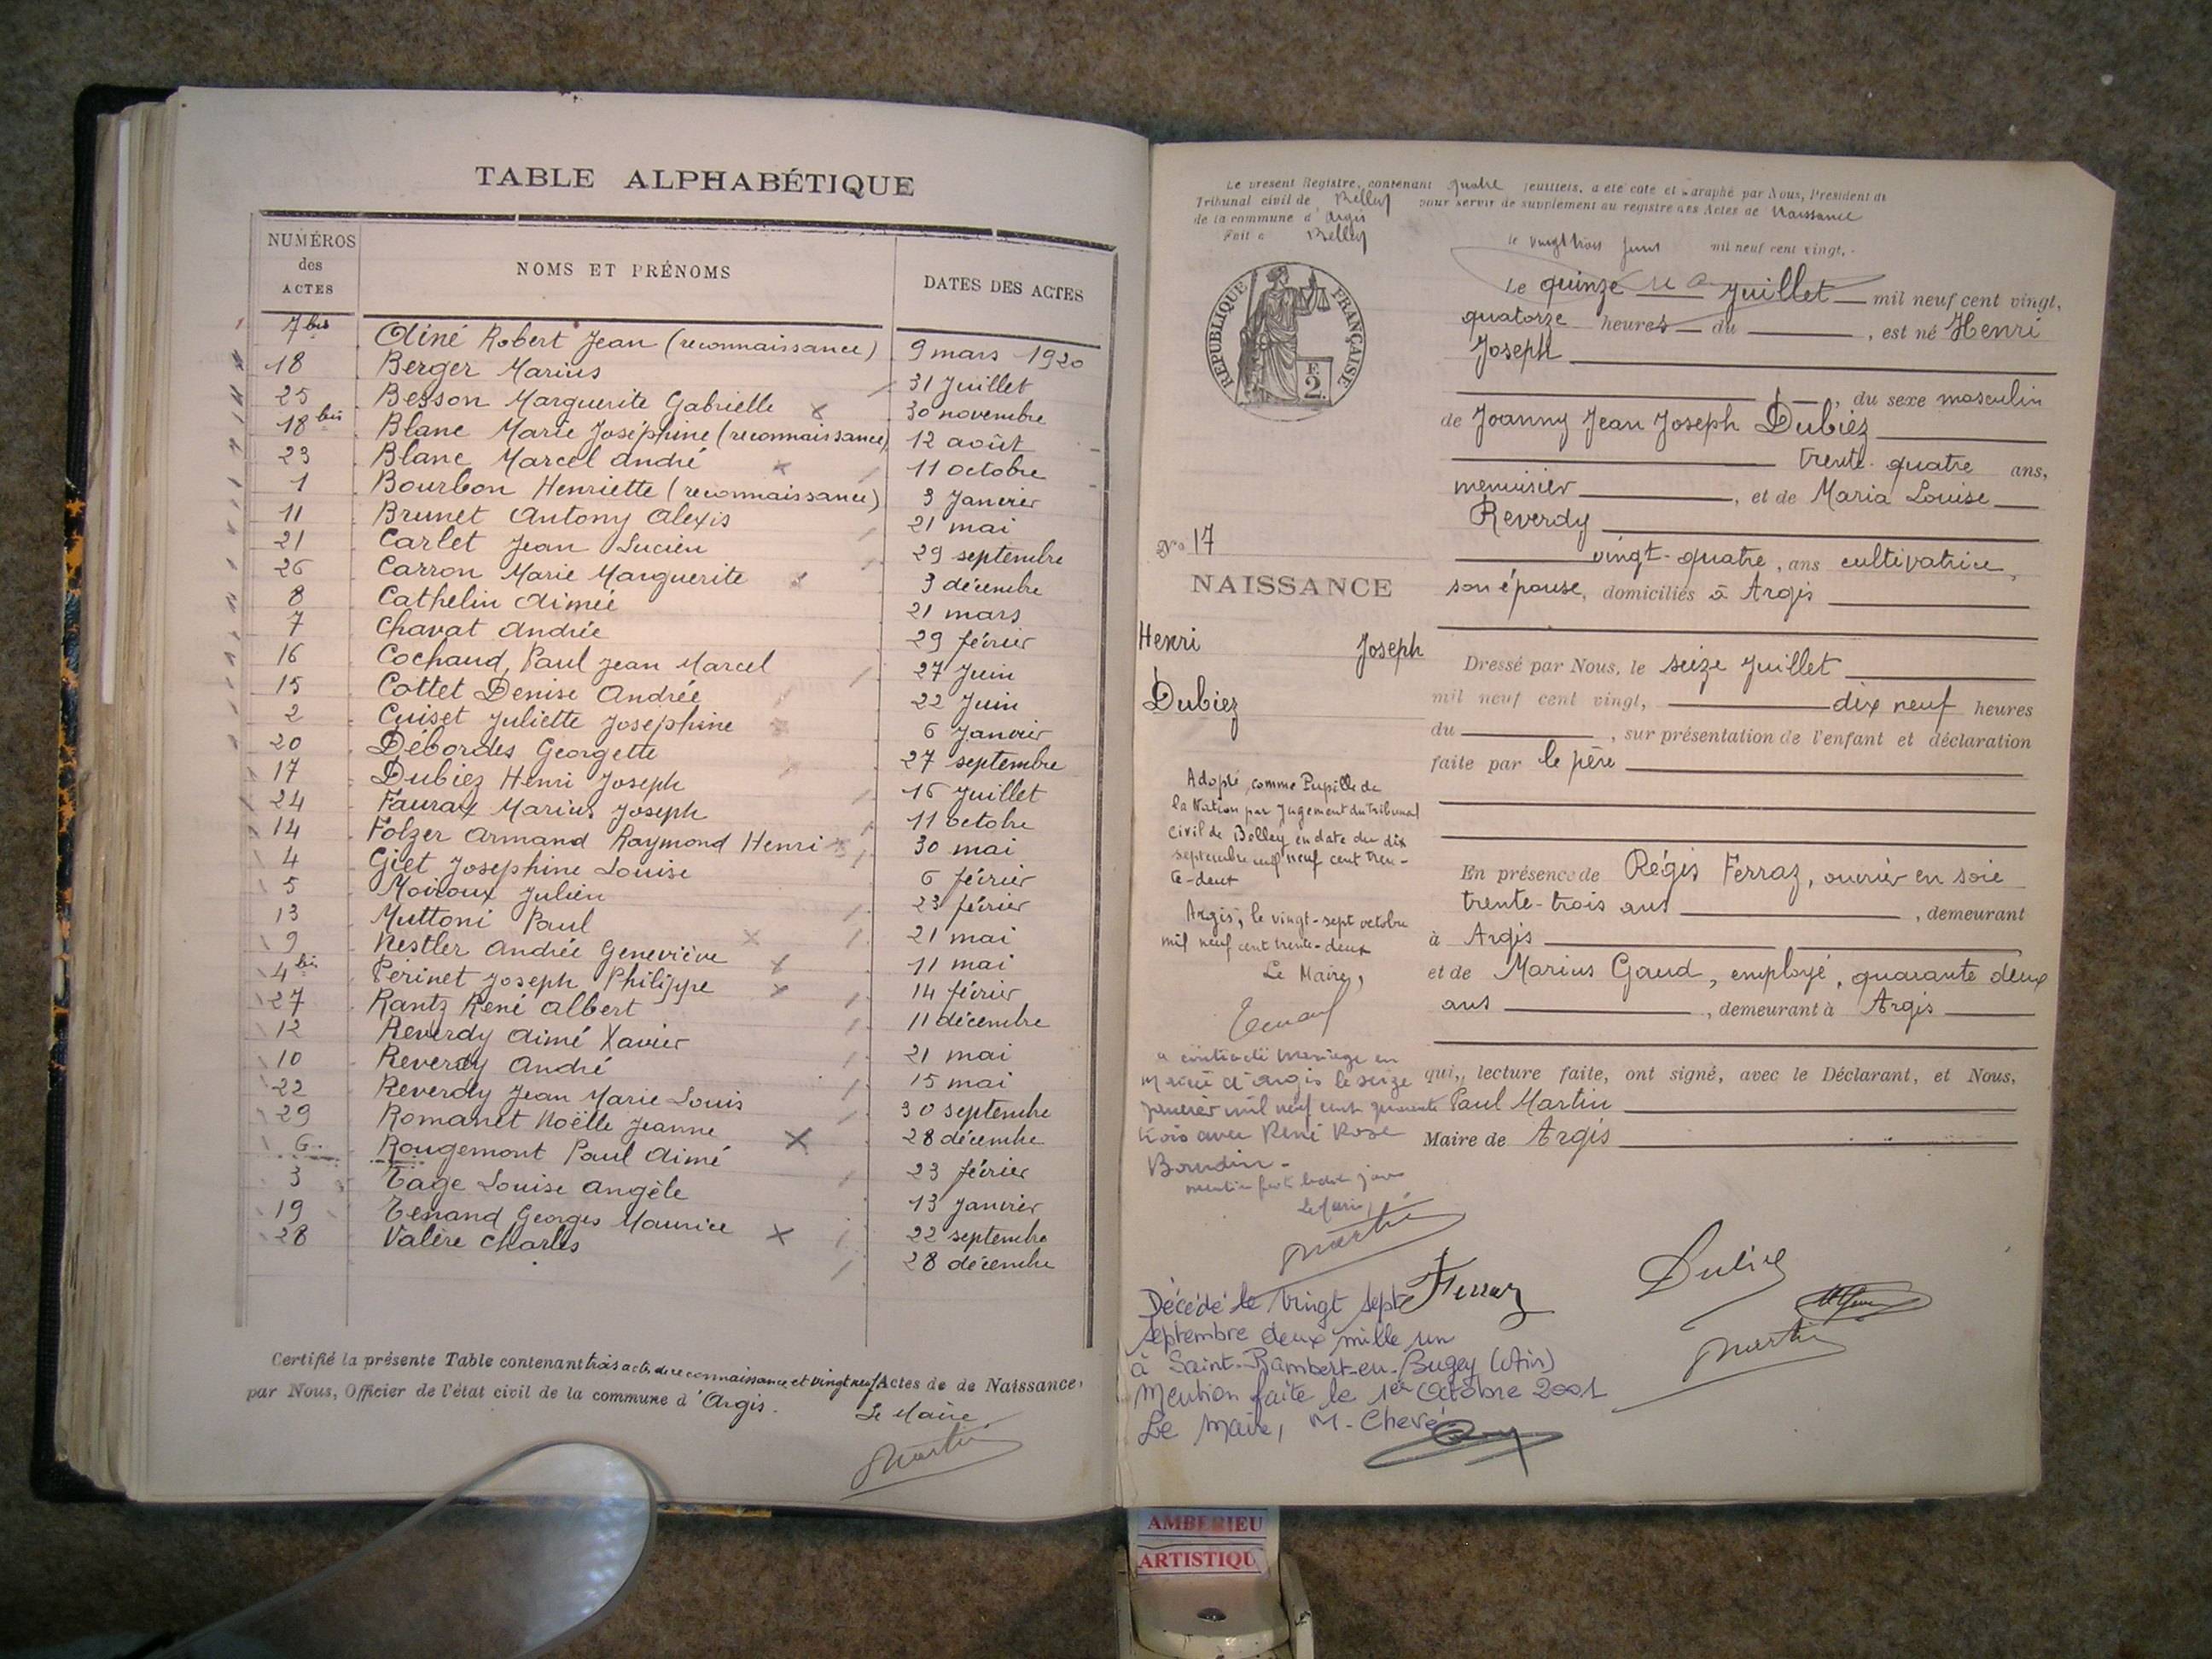 TABLE ALPHABÉTIQUE
NUMÉROS des ACTES NOMS ET PRÉNOMS DATES DES ACTES
7 bis Aîné Robert Jean (reconnaissance) 9 mars 1920
18 Berger Marius 31 Juillet
25 Besson Marguerite Gabrielle 30 novembre
18 bis Blanc Marie Joséphine (reconnaissance) 12 août
23 Blanc Marcel André 11 octobre
1 Bourbon Henriette (reconnaissance) 3 Janvier
11 Brunet Antony Alexis 21 mai
21 Carlet Jean Lucien 29 septembre
26 Carron Marie Marguerite 3 décembre
8 Cathelin Aimée 21 mars
7 Chavat Andrée 29 février
16 Cochaud, Paul Jean Marcel 27 Juin
15 Cottet Denise Andrée 22 Juin
2 Cuiset Juliette Josephine 6 Janvier
20 Débordes Georgette 27 septembre
17 Dubiez Henri Joseph 16 Juillet
24 Faurax Marius Joseph 11 octobre
14 Folzer Armand Raymond Henri 30 mai
4 Gilet Josephine Louise 6 février
5 Moiroux Julien 23 février
13 Muttoni Paul 21 mai
9 Nestler Andrée Geneviève 11 mai
4 bis Périnet Joseph Philippe 14 février
27 Rantz René Albert 11 décembre
12 Reverdy Aimé Xavier 21 mai
10 Reverdy André 15 mai
22 Reverdy Jean Marie Louis 30 septembre
29 Romanet Noëlle Jeanne 28 décembre
6 Rougemont Paul Aimé 23 février
3 Tage Louise Angèle 13 Janvier
19 Tenand Georges Maurice 22 septembre
28 Valère Charles 28 décembre
Certifié la présente Table contenant trois actes de reconnaissance et vingt neuf Actes de de Naissance,
par Nous, Officier de l'état civil de la commune d'Argis.
Le Maire,
Martin
Le présent Registre, contenant quatre feuillets, a été coté et paraphé par Nous, Président du
Tribunal civil de Belley pour servir de supplément au registre des Actes de Naissance
de la commune d'Argis
Fait à Belley
le vingt trois Juin mil neuf cent vingt.
RÉPUBLIQUE FRANÇAISE
F.
2.
Le quinze Juillet mil neuf cent vingt,
quatorze heures du , est né Henri
Joseph
, du sexe masculin
de Joanny Jean Joseph Dubiez
trente-quatre ans,
menuisier , et de Maria Louise
Reverdy
vingt-quatre, ans cultivatrice,
son épouse, domiciliés à Argis
Dressé par Nous, le seize Juillet
mil neuf cent vingt, dix neuf heures
du , sur présentation de l'enfant et déclaration
faite par le père
En présence de Régis Ferraz, ouvrier en soie
trente-trois ans , demeurant
à Argis
et de Marius Gaud, employé, quarante deux
ans , demeurant à Argis
qui, lecture faite, ont signé, avec le Déclarant, et Nous,
Paul Martin
Maire de Argis
No 17
NAISSANCE
Henri Joseph
Dubiez
Adopté, comme Pupille de
la Nation par Jugement du Tribunal
Civil de Belley en date du dix
septembre mil neuf cent tren-
te-deux
Argis, le vingt-sept octobre
mil neuf cent trente-deux
Le Maire,
a contracté mariage en
mairie d'Argis le seize
janvier mil neuf cent quarante
trois avec René Rose
Boudin
Le Maire,
Martin
Ferraz
Dubiez
Martin
Décédé le vingt sept
septembre deux mille un
à Saint-Rambert-en-Bugey (Ain)
Mention faite le 1er Octobre 2001
Le Maire, M. Chevé
AMBERIEU
ARTISTIQU